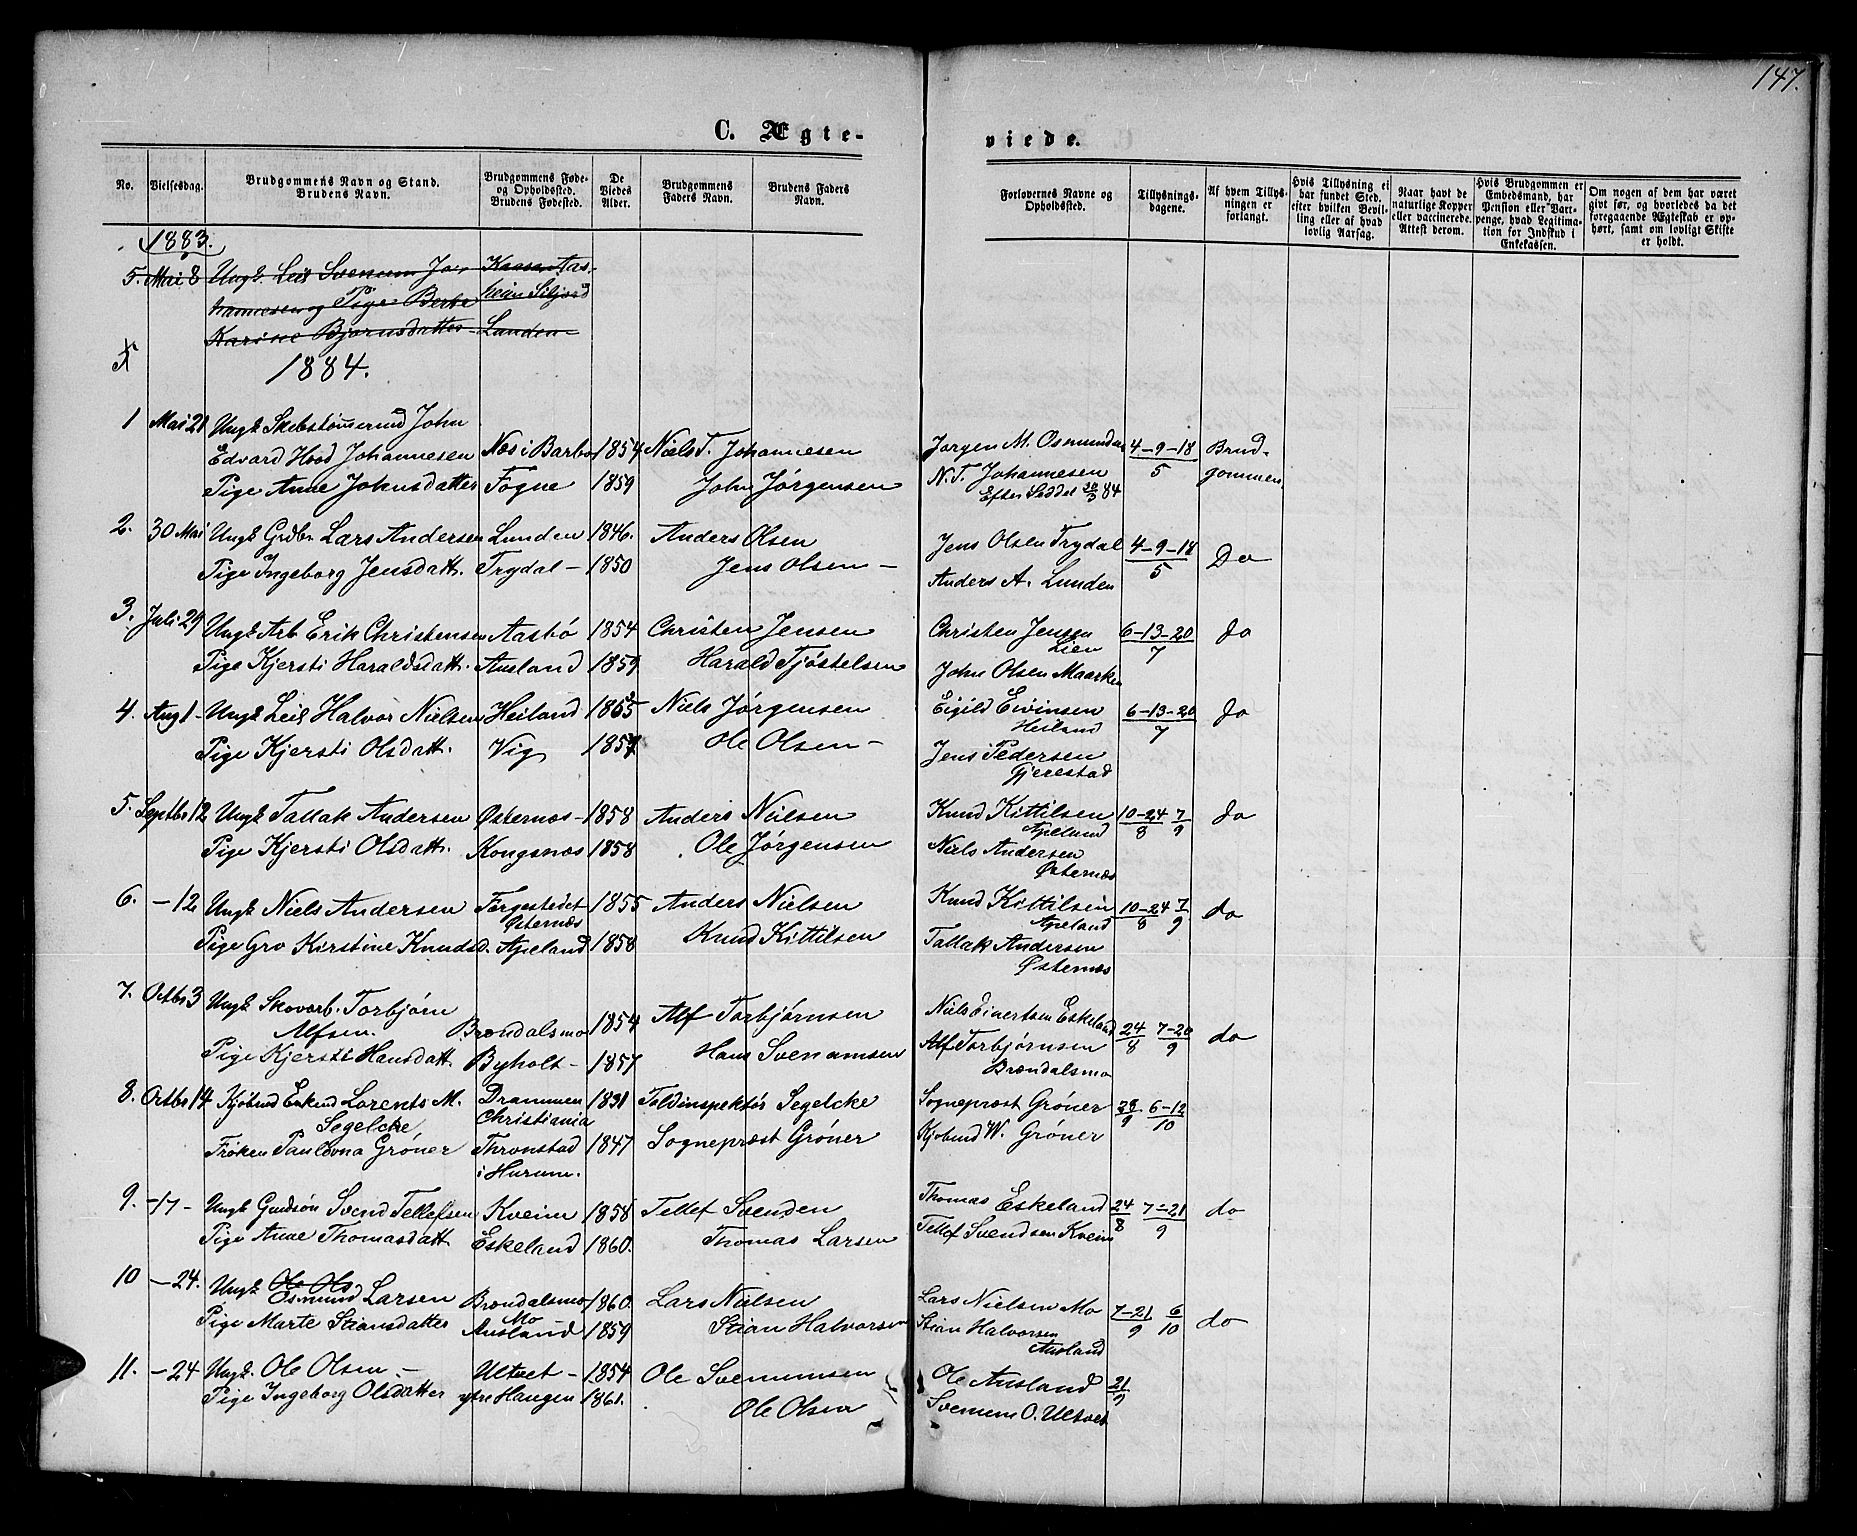 147.
C. Ægte-
viede.
No.
Vielsesdag.
Brudgommens Navn og Stand.
Brudens Navn.
Brudgommens Føde-
og Opholdssted.
Brudens Fødested.
De
Viedes
Alder.
Brudgommens
Faders Navn.
Brudens Faders
Navn.
Forlovernes Navne og
Opholdssted.
Tillysnings-
dagene.
Af hvem Tillys-
ningen er
forlangt.
Hvis Tillysning ei
har fundet Sted,
efter hvilken Bevil-
ling eller af hvad
lovlig Aarsag.
Naar havt de
naturlige Kopper
eller vaccinerede.
Attest derom.
Hvis Brudgommen er
Embedsmand, har
Pension eller Vart-
penge, hvad Legitima-
tion for Indskud i
Enkekassen.
Om nogen af dem har været
givt før, og hvorledes da det
foregaaende Ægteskab er op-
hørt, samt om lovligt Skifte
er holdt.
1883.
5. Mai 8 Ungk. Leil Svenum Jo-
hannesen og Pige Berte Siljord
Karine Bjørnsdatter Lunden
5
1884.
1 Mai 21 Ungk Skibstømmermd John
Edvard Hood Johannesen Næs i Barbo 1854 Niels T. Johannesen Jørgen M. Osmundsen 4-9-18/5 Brud-
Pige Anne Johnsdatter Fogne 1859 John Jørgensen N. T. Johannesen gommen
Efter Seddel 84
2. 30 Mai Ungk Grdbr Lars Andersen Lunden 1846. Anders Olsen Jens Olsen Trydal 4-9-18/5 Do
Pige Ingeborg Jensdatt. Trydal - 1850 Jens Olsen - Anders A. Lunden
3. Juli 29 Ungk Arb Erik Christensen Aasbø 1854 Christen Jensen Christen Jensen Lien 6-13-20/7 do
Pige Kjersti Haraldsdatt. Ausland 1859 Harald Tjøstelsen John Olsen Maarken
4. Aug 1 - Ungk Leil Halvor Nielsen Heiland 1865 Niels Jørgensen Eigild Eivinsen Heiland 6-13-20/7 do
Pige Kjersti Olsdatt. Vig 1857 Ole Olsen - Jens Pedersen Gjerestad
5. Septbr 12 Ungk Tallak Andersen Østernæs - 1858 Anders Nielsen Knud Kittilsen Apeland 10-24/8 7/9 do
Pige Kjersti Olsdatt. Kongsnæs 1858 Ole Jørgensen Niels Andersen Østernæs
6. - 12 Ungk Niels Andersen Fergestedet Østernæs 1855 Anders Nielsen Knud Kittilsen Apeland 10-24/8 7/9 do
Pige Gro Kirstine Knudsd. Apeland 1858 Knud Kittilsen Tallak Andersen Østernæs
7. Octbr 3 Ungk Skovarb. Torbjørn
Alfsen. Brøndalsmo 1854 Alf Torbjørnsen Niels Einertsen Eskeland 24/8 7-20/9 do
Pige Kjersti Hansdatt. Byholt - 1857 Hans Svenumsen Alf Torbjørnsen Brøndalsmo
8. Octbr 14 Kjøbmd Enkemd Lorents M. Drammen 1831 Toldinspektør Segelcke Sognepræst Grøner 28/9 6-12/10
Segelcke Christiania
Frøken Paulovna Grøner Thronstad 1847 Sognepræst Grøner Kjøbmd W. Grøner
i Hurum.
9. - 17 - Ungk Gmdsøn Svend Tellefsen Kveim 1858 Tellef Svenden Thomas Eskeland 24/8 7-21/9 do
Pige Anne Thomasdatt Eskeland 1860. Thomas Larsen Tellef Svendsen Kveim
10 - 24. Ungk Ole Ols
Osmund Larsen Brøndalsmo 1860. Lars Nielsen Lars Nielsen Mo 7-21/9 6/10 do
Mo
Pige Marte Stiansdatter Ausland 1859 Stian Halvorsen Stian Halvorsen Ausland
11. - 24 Ungk. Ole Olsen - Ultvet - 1854 Ole Svenumsen Ole Ausland 21/9
Pige Ingeborg Olsdatter ytre Haugen 1861. Ole Olsen Svenum O. Ultvet